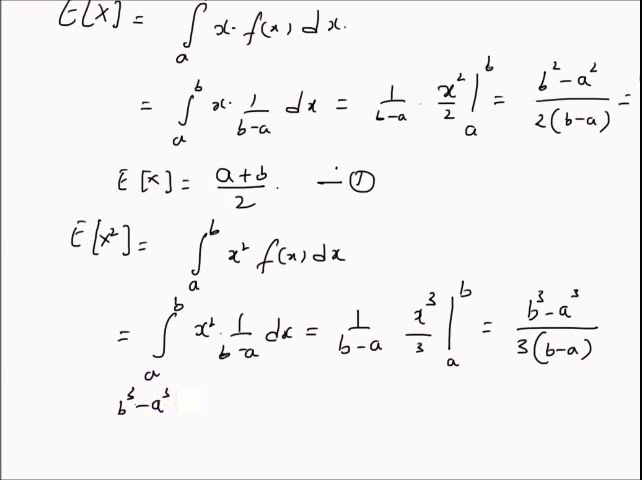 E[X] = ∫ₐ x. f(x) dx.
= ∫ₐᵇ x. 1/(b-a) dx = 1/(b-a) . x²/2 |ₐᵇ = (b²-a²)/(2(b-a)) =
E[x] = (a+b)/2. — ①
E[x²] = ∫ₐᵇ x² f(x) dx
= ∫ₐᵇ x². 1/(b-a) dx = 1/(b-a) x³/3 |ₐᵇ = (b³-a³)/(3(b-a))
b³-a³